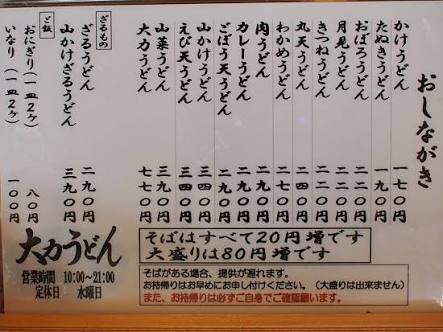 おしながき
かけうどん 一七〇円
たぬきうどん 一九〇円
おぼろうどん 一九〇円
月見うどん 二二〇円
きつねうどん 二二〇円
丸天うどん 二二〇円
わかめうどん 二二〇円
肉うどん 二九〇円
カレーうどん 二九〇円
ごぼう天うどん 二九〇円
山かけうどん 三四〇円
えび天うどん 三四〇円
山菜うどん 三九〇円
大力うどん 七七〇円
ざるもの
ざるうどん 二九〇円
山かけざるうどん 三九〇円
ご飯
おにぎり(一皿2ヶ) 八〇円
いなり(一皿2ヶ) 一〇〇円
大力うどん
営業時間 10:00～21:00
定休日 水曜日
そばはすべて20円増です
大盛りは80円増です
そばがある場合、提供が遅れます。
お持帰りはお早めにお申し付けください。(大盛りは出来ません)
また、お持帰りは必ずご自身でご確認願います。